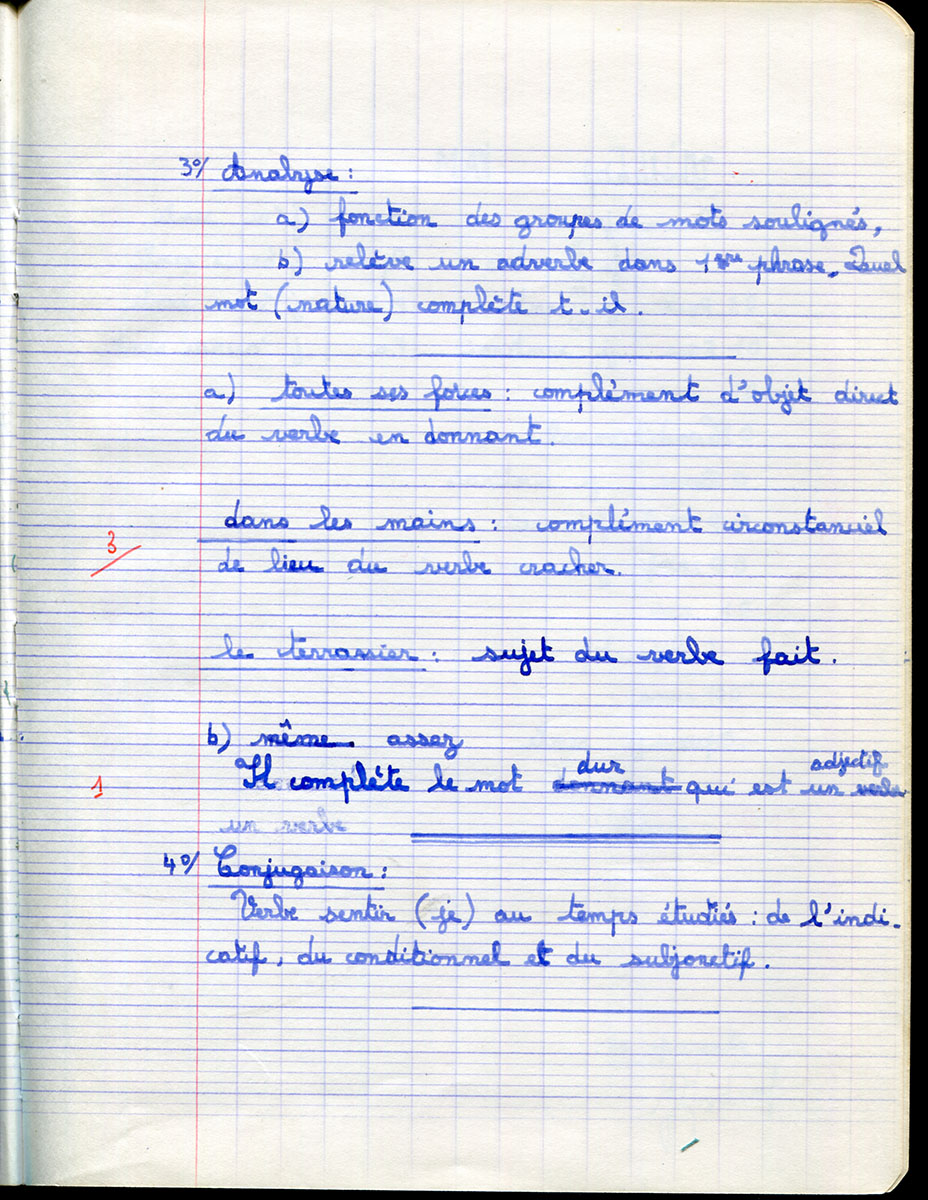 3°/ Analyse :
a) fonction des groupes de mots soulignés,
b) relève un adverbe dans 1ère phrase. Quel
mot (nature) complète t-il.
a) toutes ses forces : complément d'objet direct
du verbe en donnant.
dans les mains : complément circonstanciel
3
de lieu du verbe cracher.
le terrassier : sujet du verbe fait.
b) même assez
dur adjectif
1 Il complète le mot donnant qui est un verbe
un verbe
4°/ Conjugaison :
Verbe sentir (je) au temps étudiés : de l'indi-
catif, du conditionnel et du subjonctif.